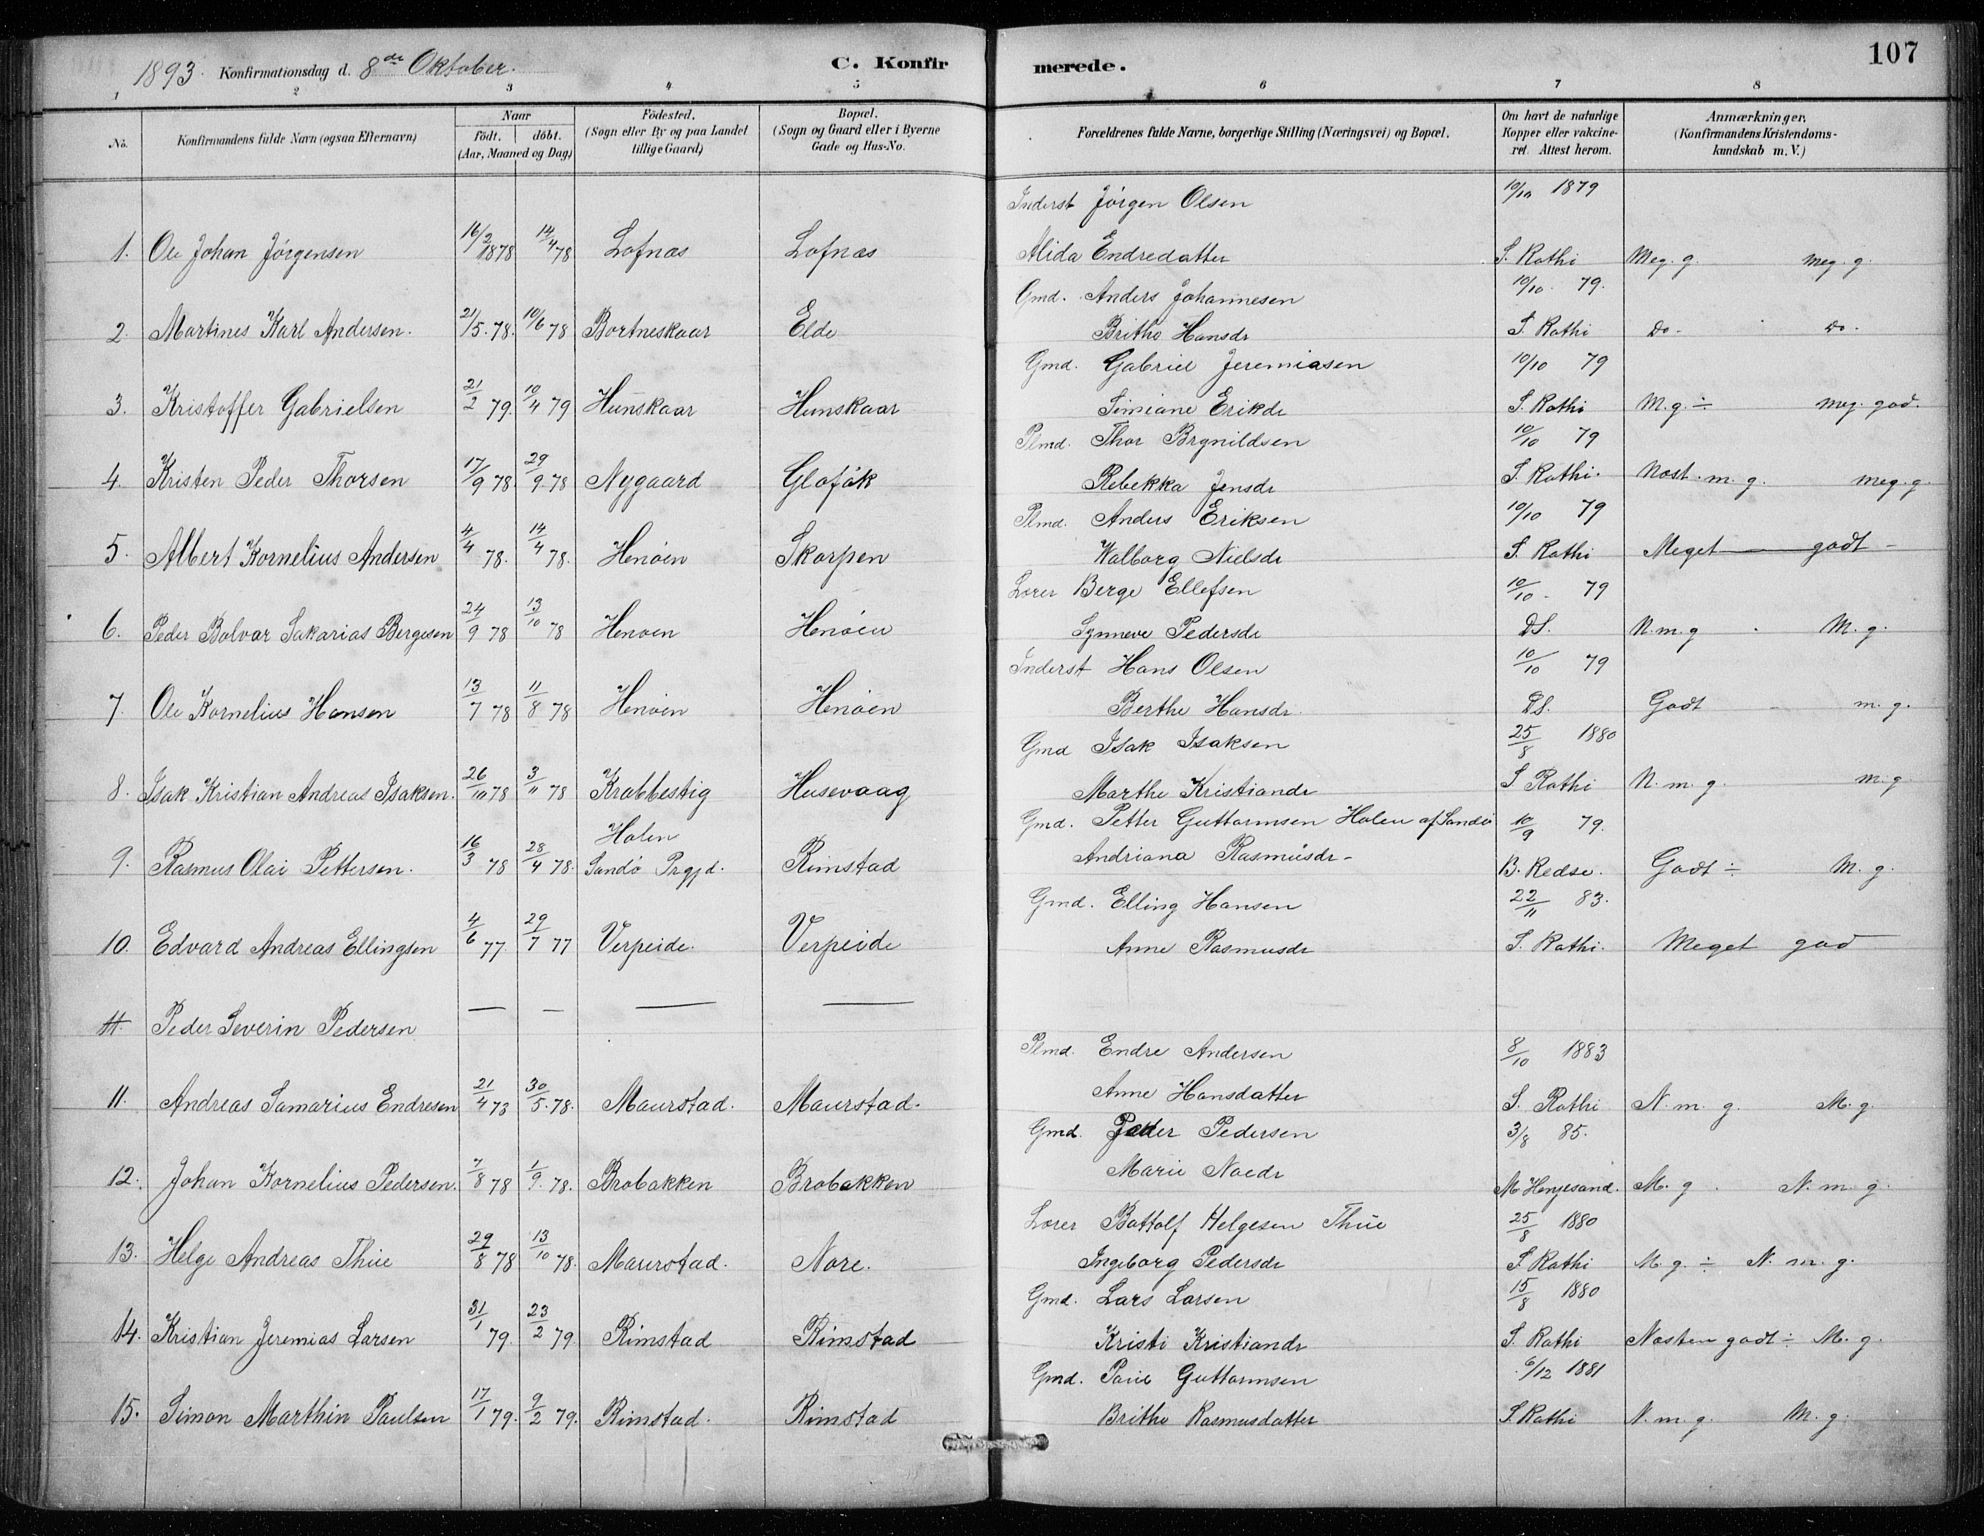 1893. Konfirmationsdag d. 8de Oktober. C. Konfirmerede. 107
1 2 3 4 5 6 7 8
No. Konfirmandens fulde Navn (ogsaa Efternavn) Naar födt. döbt. (Aar, Maaned og Dag) Födested. (Sogn eller By og paa Landet tillige Gaard) Bopæl. (Sogn og Gaard eller i Byerne Gade og Hus-No. Forældrenes fulde Navne, borgerlige Stilling (Næringsvei) og Bopæl. Om havt de naturlige Kopper eller vakcineret. Attest herom. Anmærkninger. (Konfirmandens Kristendomskundskab m. V.)
Inderst Jörgen Olsen 10/10 1879
1. Ole Johan Jörgensen 16/2 1878 14/4 78 Lofnæs Lofnæs Alida Endredatter S. Rothi Meg. g. meg. g.
Gmd. Anders Johannesen 10/10 79.
2. Martines Karl Andersen. 21/5. 78. 10/6 78 Bortneskaar Elde Brithe Hansdr S. Rothi Do. Do.
Gmd. Gabriel Jeremiasen 10/10 79
3. Kristoffer Gabrielsen 21/2 79. 10/4 79 Hunskaar Hunskaar Simiane Erikdr S. Rothi M. g. ÷ meg. god.
Plmd. Thor Brynildsen 10/10 79
4. Kristen Peder Thorsen 17/9 78. 29/9. 78 Nygaard Glofök Rebekka Jensdr S. Rothi. Næst. m. g. meg. g.
Plmd. Anders Eriksen 10/10 79
5. Albert Kornelius Andersen 4/4 78. 14/4 78. Henöen Skorpen Walborg Nielsdr S. Rothi Meget godt
Lærer Berge Ellefsen 10/10. 79
6. Peder Bolvar Sakarias Bergesen 24/9 78 13/10 78 Henöen Henöen Synneve Pedersdr DS. N. m. g M. g.
Inderst Hans Olsen 10/10 79
7. Ole Kornelius Hansen 13/7 78 11/8 78 Henöen Henöen Berthe Hansdr. DS. Godt m. g.
Gmd Isak Isaksen 25/8 1880
8. Isak Kristian Andreas Isaksen. 26/10 78 3/11 78 Krabbestig Husevaag Marthe Kristiandr S Rothi N. m. g. m. g
Holen Gmd. Petter Guttormsen Holen af Sandö 10/9 79.
9. Rasmus Olai Pettersen. 16/3 78 28/4 78. Sandö Prgjd. Rimstad Andriana Rasmusdr B. Redse. Godt ÷ M. g.
Gmd. Elling Hansen 22/11 83.
10. Edvard Andreas Ellingsen 4/6 77. 29/7 77 Verpeide. Verpeide Anne Rasmusdr S. Rothi. Meget god
11. Peder Severin Pedersen — — — —
Plmd. Endre Andersen 8/10 1883
11. Andreas Samarius Endresen 21/4 78 30/5. 78. Maurstad. Maurstad. Anne Hansdatter S. Rothi N. m. g. M. g.
Gmd. Peder Pedersen 3/8 85.
12. Johan Kornelius Pedersen. 7/8 78 1/9. 78. Brobakken Brobakken Marie Noedr M Henjesand. M. g. N. m. g.
Lærer Bottolf Helgesen Thue 25/8 1880
13. Helge Andreas Thue 29/8 78 13/10 78. Maurstad. Nore. Ingeborg Pedersdr S. Rothi M. g. ÷ N. m. g.
Gmd. Lars Larsen 15/8 1880
14. Kristian Jeremias Larsen 31/1 79. 23/2 79. Rimstad Rimstad Kristi Kristiandr S. Rothi Næsten godt ÷ M. g.
Gmd. Poul Guttormsen 6/12 1881
15. Simon Marthin Paulsen 17/1 79. 9/2 79. Rimstad. Rimstad Brithe Rasmusdatter S. Rothi N. m. g. M. g.